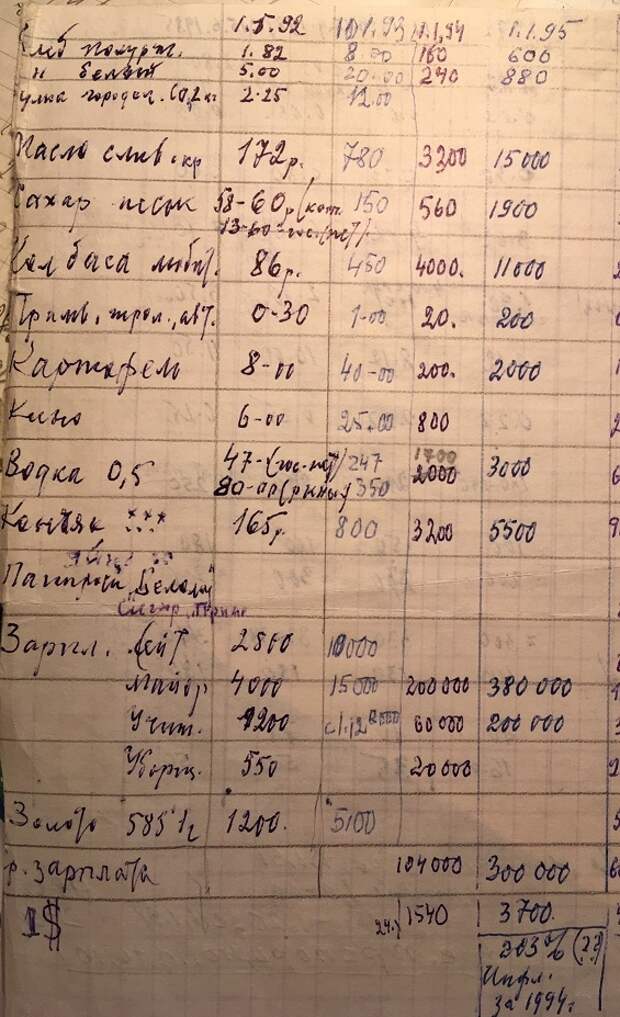 1.5.92 1.1.93 1.1.94 1.1.95
Хлеб полурж. 1.82 8.00 160 600
и белый 5.00 20.00 240 880
улка городск. 2.25 12.00
Масло слив. кр 172р. 780 3200 15000
Сахар песок 58-60р (ком. 150 560 1900
Колбаса любит. 86р. 450 4000. 11000
Трамв, трол., авт. 0-30 1-00 20. 200
Картофель 8-00 40-00 200. 2000
Кино 6-00 25.00 800
1700
Водка 0,5 47-(гос.-нет) 247 2000 3000
80-00 (рынок) 350
Коньяк *** 165р. 800 3200 5500
Папиросы „Белом"
Зарпл. лейт 2800 10000
Майор 4000 15000 200000 380 000
Учит. 1200 60000 200 000
Уборщ. 550 20000
Золото 585° 1г 1200. 5100
р. зарплата 104000 300 000
1$ 1540 3700.
203% (??)
Инфл.
за 1994г.